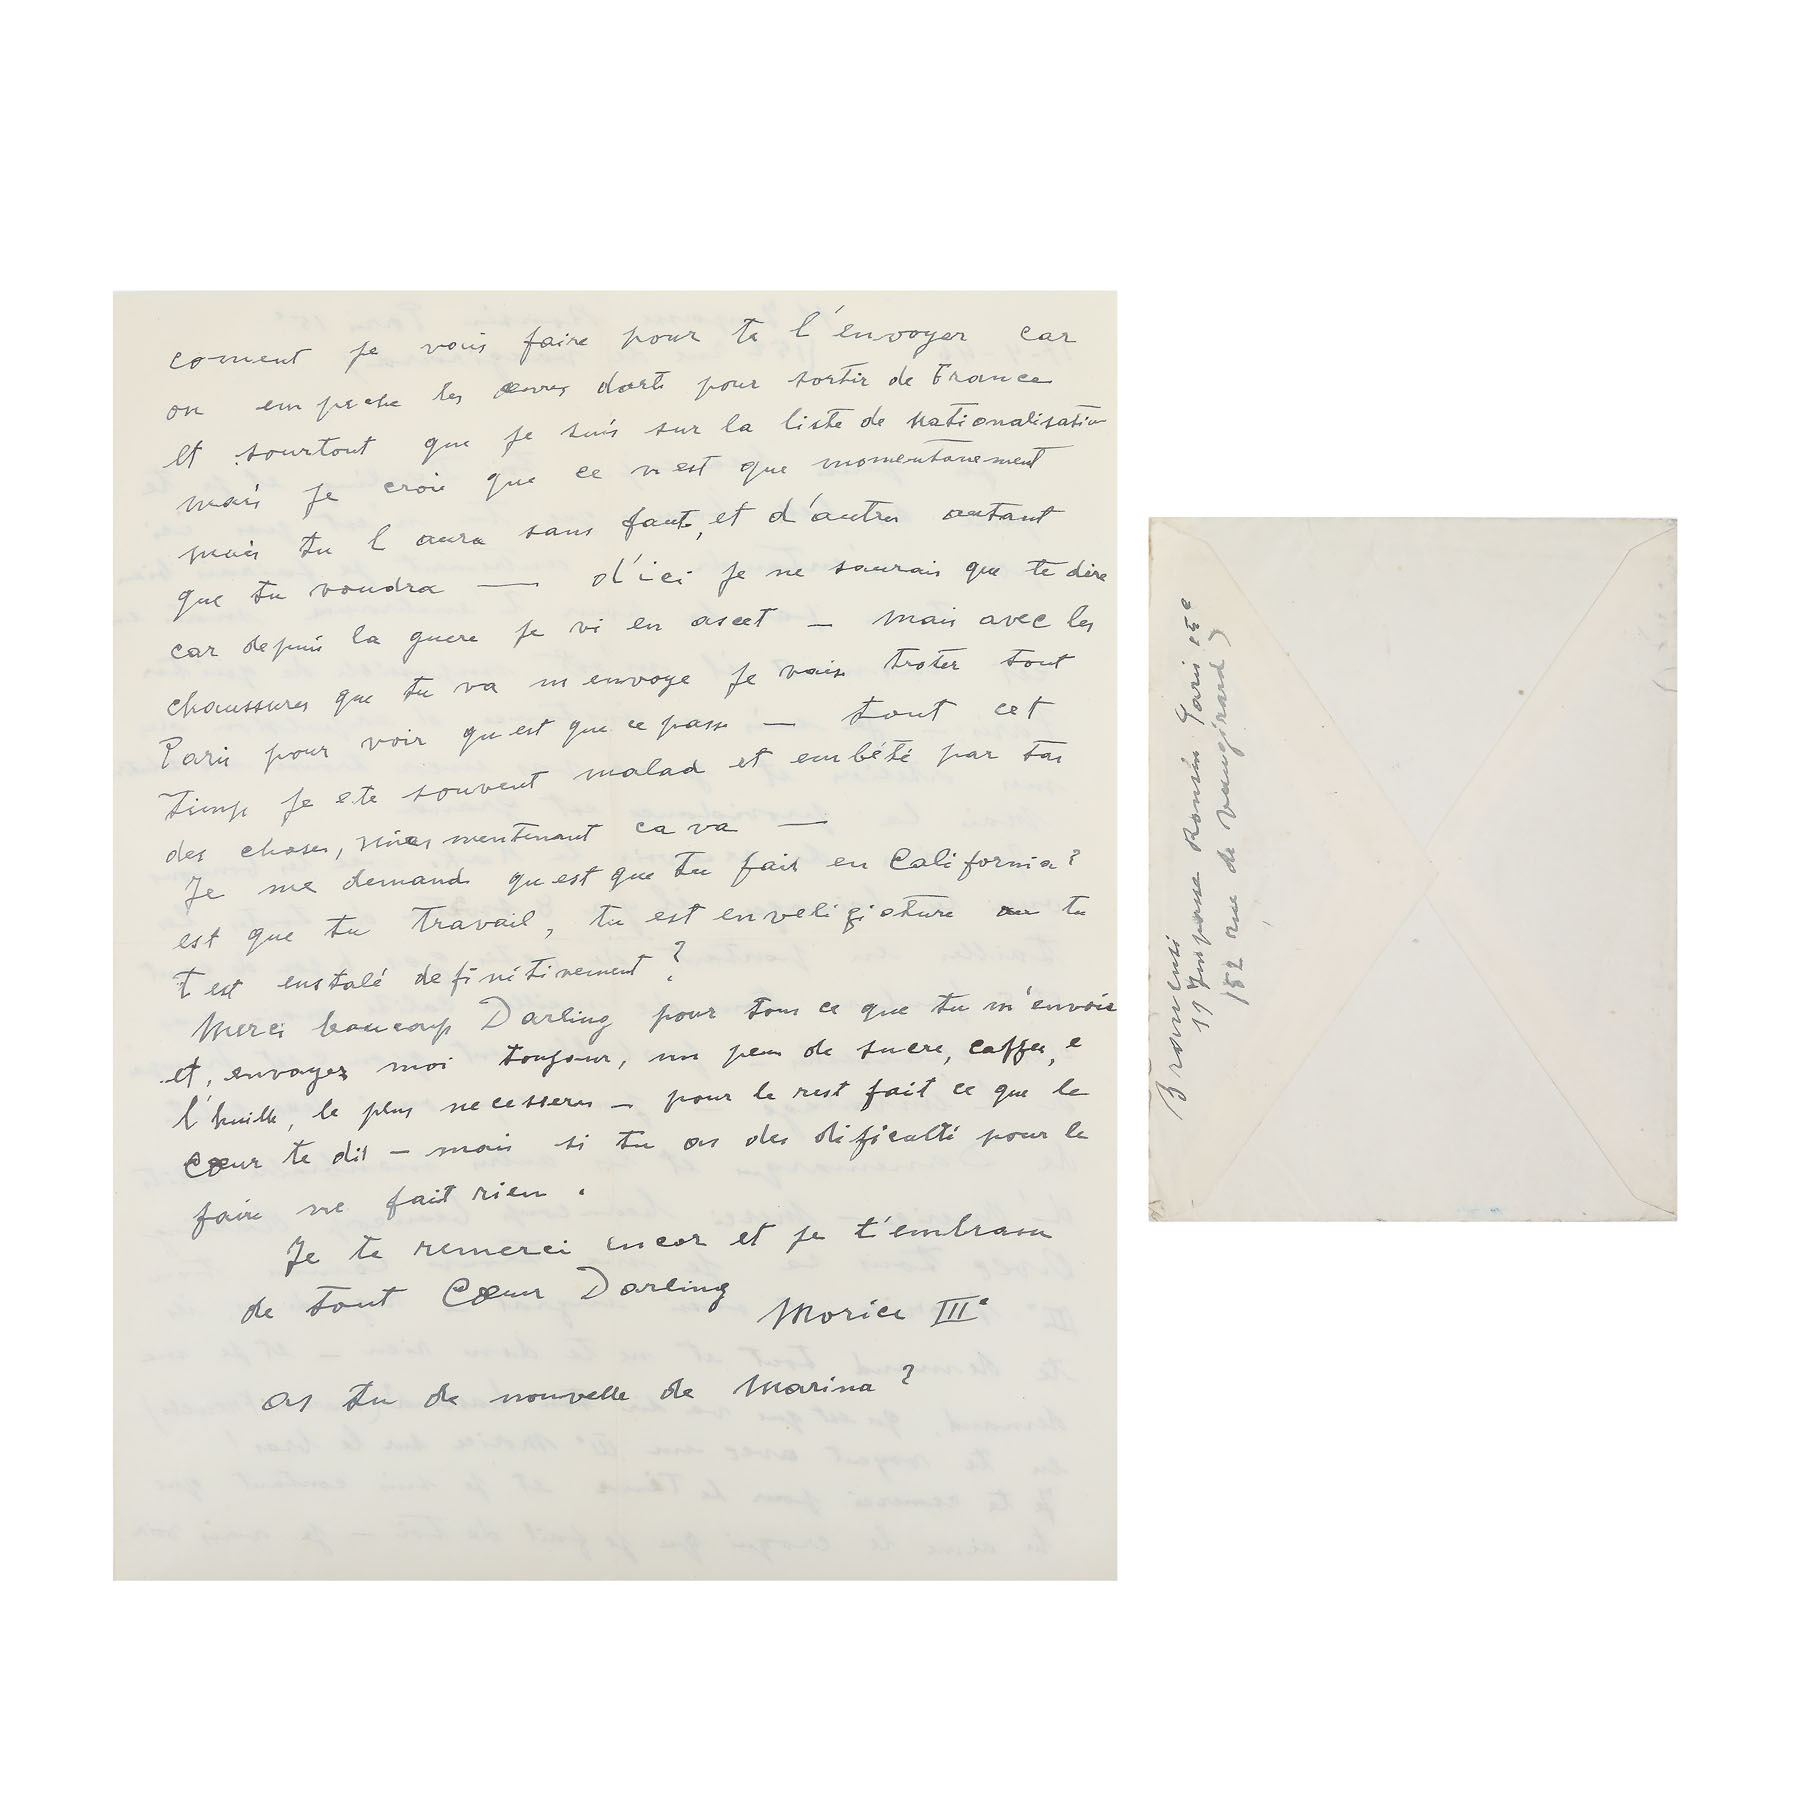 coment je vais faire pour te l'envoyer car
on empeche les œvres darts pour sortir de France
et sourtout que je suis sur la liste de nationalisation
mais je croie que ce n est que momentanement
mais tu l aura sans faute, et d'autres autant
que tu voudra — d'ici je ne saurais que te dire
car depuis la guere je vi en ascet — mais avec les
chaussures que tu va m envoye je vais troter tout
Paris pour voir qu est que ce passe — tout cet
temp je ete souvent malad et embété par tas
des choses, mentenant ca va —
Je me demande qu est que tu fais en California?
est que tu travail, tu est en veligiature ou tu
t est enstalé definitivement?
Merci baucoup Darling pour tous ce que tu m'envoie
et, envoyez moi toujour, un peu de sucre, caffee, e
l'huille, le plus necesseres — pour le rest fait ce que le
Cœur te dit — mais si tu as des dificulté pour le
faire ne fait rien.
Je te remerci encor et je t'embrasse
de tout Cœur Darling
Morice IIIe
As tu de nouvelle de Marina?
Brancusi
11 Impasse Ronsin Paris 15e
152 rue de vaugirard)